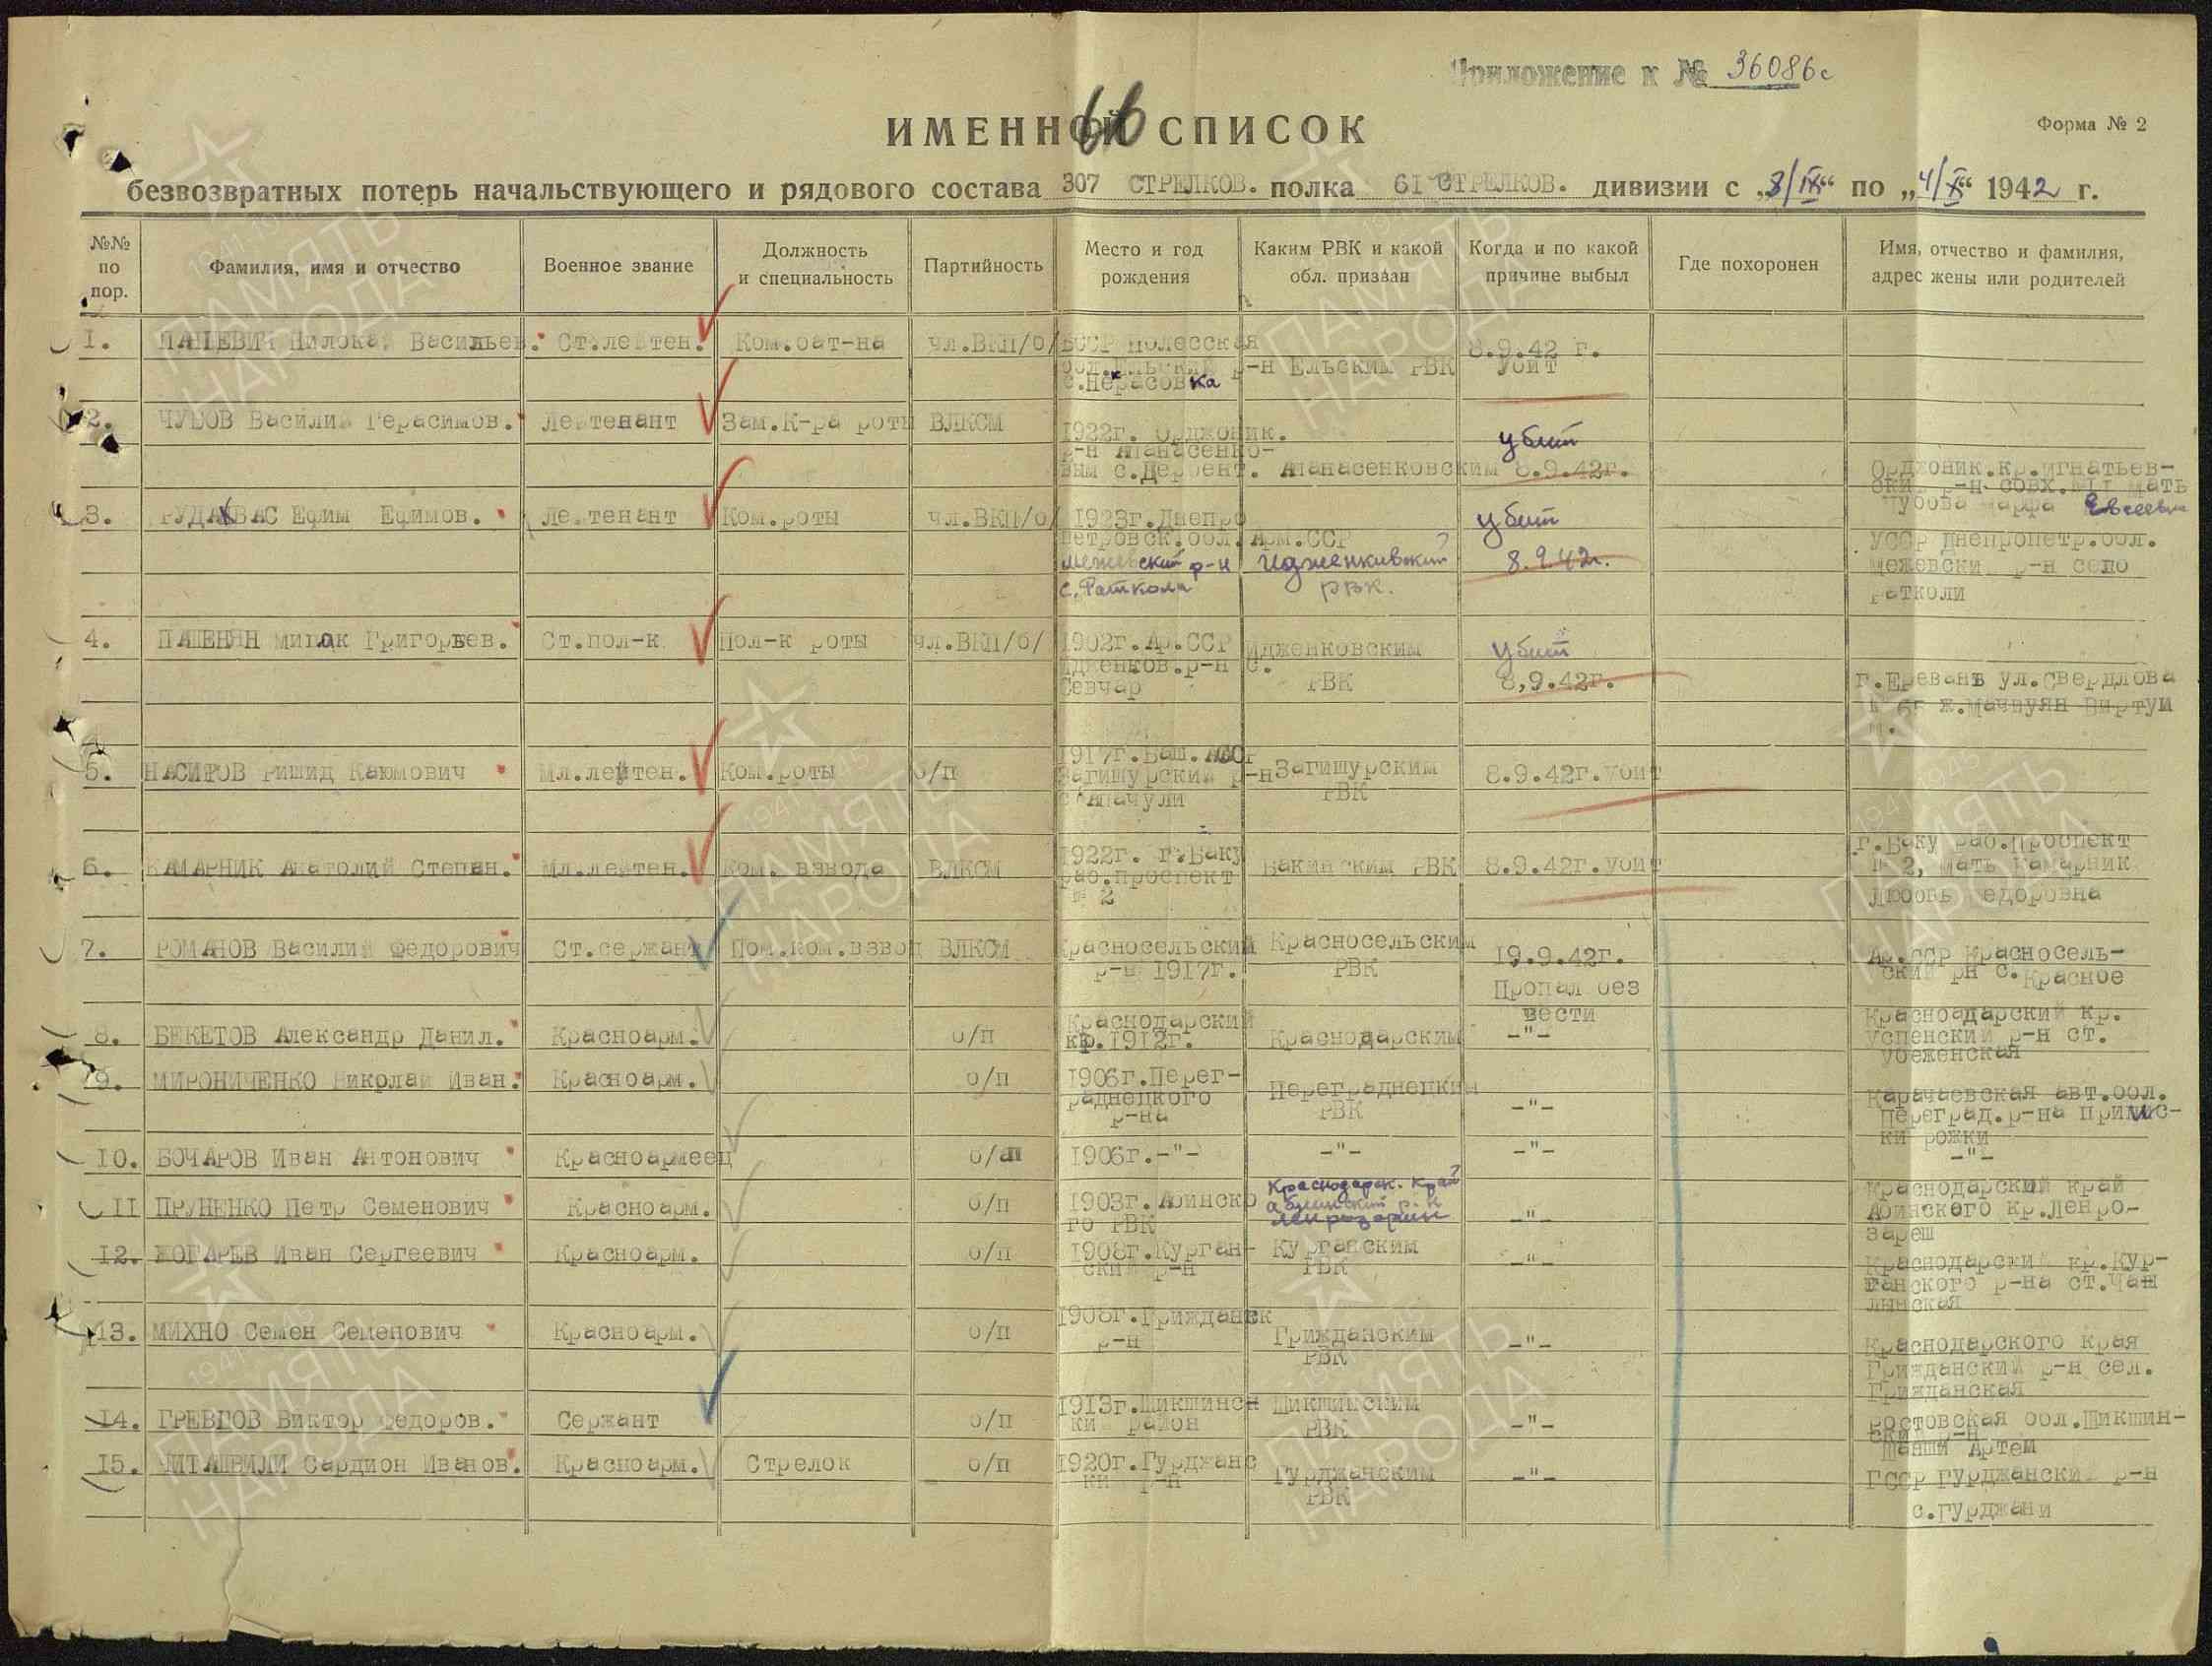 Приложение к № 36086с
66
ИМЕННОЙ СПИСОК
Форма № 2
безвозвратных потерь начальствующего и рядового состава 307 СТРЕЛКОВ. полка 61 СТРЕЛКОВ. дивизии с „8/IX“ по „4/X“ 1942 г.
№№ по пор.
Фамилия, имя и отчество
Военное звание
Должность и специальность
Партийность
Место и год рождения
Каким РВК и какой обл. призван
Когда и по какой причине выбыл
Где похоронен
Имя, отчество и фамилия, адрес жены или родителей
1. Васильев. Ст.лейтен. Ком.бат-на чл.ВКП/б/ БССР Полесская
обл. Ельский р-н Ельским РВК 8.9.42 г.
убит
2. ЧУБОВ Василий Герасимов. Лейтенант Зам.К-ра роты ВЛКСМ
1922г. Орджоник.
р-н Апанасенко-
вым с.Дербент. Апанасенковским убит 8.9.42г.
Орджоник.кр.Игнатьев-
ский р-н совх. мать
Чубова Марфа
3. Ефим Ефимов. Лейтенант Ком.роты чл.ВКП/б/ 1923г.Днепро
петровск.обл. Арм.ССР убит
Межевский р-н РВК. 8.9.42г.
УССР Днепропетр.обл.
Межевский р-н село
Ратколи
4. Григорьев. Ст.пол-к Пол-к роты чл.ВКП/б/ 1902г.Ар.ССР Идженковским убит
Идженков.р-н с.
Севчар РВК 8,9.42г.
г.Еревань ул.Свердлова
5. НАСИРОВ Ришид Каюмович Мл.лейтен. Ком.роты б/п
1917г.Баш.АССР
Загишурский р-н Загишурским 8.9.42г.убит
РВК
6. КАМАРНИК Анатолий Степан. Мл.лейтен. Ком. взвода ВЛКСМ
1922г. г.Баку
раб.проспект Бакинским РВК 8.9.42г.убит
№ 2
г.Баку раб.проспект
№ 2, мать Камарник
Любовь Федоровна
7. РОМАНОВ Василий Федорович Ст.сержант Пом.ком.взвод ВЛКСМ
Красносельский Красносельским 19.9.42г.
р-н 1917г. РВК
Пропал без
вести
Ар.ССР Красносель-
ский рн с.Красное
8. БЕКЕТОВ Александр Данил. Красноарм. б/п
Краснодарский
кр.1912г. Краснодарским -"-
Краснодарский кр.
Успенский р-н ст.
Убеженская
9. МИРОНИЧЕНКО Николай Иван. Красноарм. б/п
1906г.Перег-
раднецкого
р-на
РВК -"-
Карачаевская авт.обл.
10. БОЧАРОВ Иван Антонович Красноармеец б/п 1906г.-"- -"- -"-
-"-
11 ПРУНЕНКО Петр Семенович Красноарм. б/п 1903г. Абинско
го РВК
Краснодарск. край
-"-
Краснодарский край
Абинского кр.Ленро-
зареш
12. ЖОГАРЕВ Иван Сергеевич Красноарм. б/п 1908г.Курган-
ский р-н Курганским
РВК -"-
Краснодарский кр.Кур-
ганского р-на
13. МИХНО Семен Семенович Красноарм. б/п
1908г.
р-н Гриждáнским
РВК -"-
Краснодарского края
Гражданский р-н сел.
Гражданская
14. Виктор Федоров. Сержант б/п
1913г.
район
РВК -"-
Ростовская обл.Шикшин-
ский р-н
15. Сардион Иванов. Красноарм. Стрелок б/п
1920г.Гурджанс
кий р-н Гурджанским
РВК -"-
ГССР Гурджанский р-н
с.Гурджани
1941 1945
ПАМЯТЬ
НАРОДА